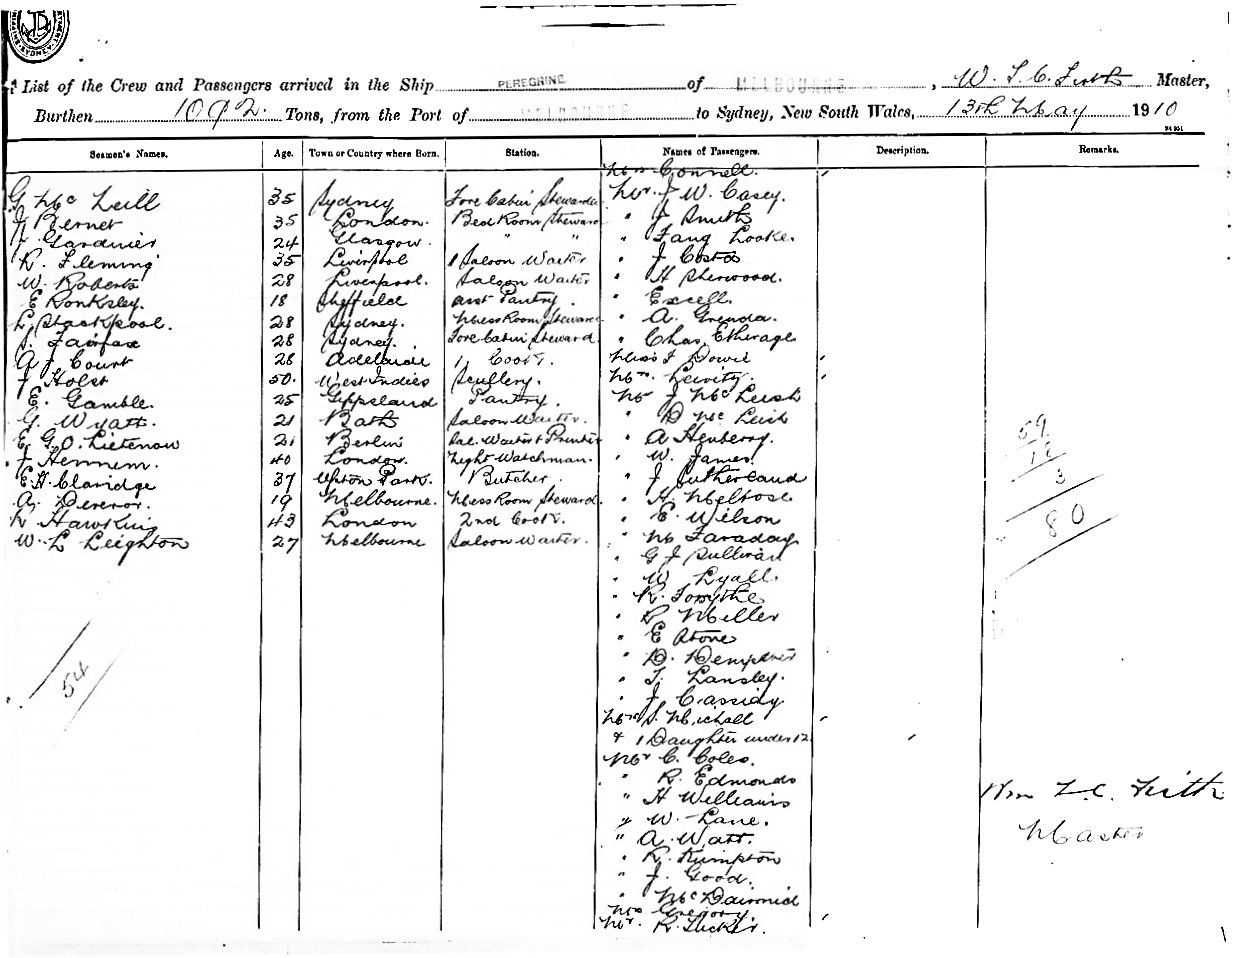 List of the Crew and Passengers arrived in the Ship PEREGRINE of MELBOURNE, W. T. C. Firth Master,
Burthen 1092 Tons, from the Port of MELBOURNE to Sydney, New South Wales, 13th May 1910
Seamen's Names. Age. Town or Country where Born. Station. Names of Passengers. Description. Remarks.
Mrs Connell.
G Mc Neill 35 Sydney Fore Cabin Stewardess Mr. J W. Casey.
J Bernet 35 London. Bed Room Steward " J Smith
J Gardner 24 Glasgow. " " " Fang Looke.
R. Fleming 35 Liverpool 1 Saloon Waiter " J Costa
W. Roberts 28 Liverpool. Saloon Waiter " H Sherwood.
E Ronksley. 18 Sheffield asst Pantry. " Excell.
L. Stackpool. 28 Sydney. Mess Room Steward " A. Grenda.
J. Fairfax 28 Sydney. Fore Cabin Steward " Chas. Etherage
A J Court 28 Adelaide 1 Cook. Miss F Dowie
J Holst 50. West Indies Scullery. Mrs. Levity.
E. Gamble. 25 Gippsland Pantry. Mr J McLeish
G. Wyatt. 21 Bath Saloon Waiter. " D Mc Leish
E G. O. Lietenow 21 Berlin Sal. Waiter & Printer " A Henberry.
J Hennem. 40 London. Night Watchman. " W. James.
E. H. Claridge 37 Upton Park. Butcher. " J Sutherland
A. Deveror. 19 Melbourne. Mess Room Steward. " H. Melrose
R Hawkins 43 London 2nd Cook. " E. Wilson
W. L Leighton 27 Melbourne Saloon Waiter. " M Faraday
" G J Sullivan
" W Lyall.
" R. Forsythe
" R Miller
" E Stone
" D. Dempster
" T. Lansley.
" J Cassidy
Mrs S. Michall
& 1 Daughter under 12
Mr C. Coles.
" R. Edmonds
" H Williams
" W. Lane.
" A. Watt.
" R. Kumpton
" J. Good.
" McDairmid
Mrs Gregory.
Mr. R. Tucker.
59
18
3
80
54
Wm T. C. Firth
Master